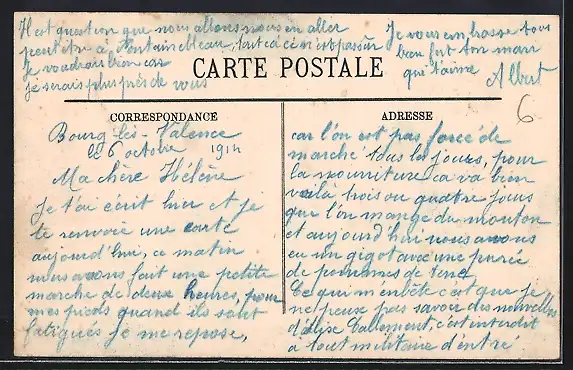 Il est question que nous allons nous en aller
peut être a Fontainebleau, tout ca ce n'est pas sûr
Je voudrais bien car
je serais plus près de vous
Je vous embrasse tous
bien fort ton mari
qui t'aime
Albert
6
CARTE POSTALE
CORRESPONDANCE
Bourg-lès-Valence
le 6 octobre 1914
Ma chère Hélène
Je t'ai écrit hier et je
te renvoie une carte
aujourd'hui, ce matin
nous avons fait une petite
marche de deux heures, pour
mes pieds quand ils sont
fatigués je me repose,
ADRESSE
car l'on est pas forcé de
marché tous les jours, pour
la nourriture ca va bien
voilà trois ou quatre jours
que l'on mange du mouton
et aujourd'hui nous avons
eu un gigot avec une purée
de pommes de terre
Ce qui m'enbête c'est que je
ne peux pas savoir des nouvelles
c'est interdit
a tout militaire d'entré